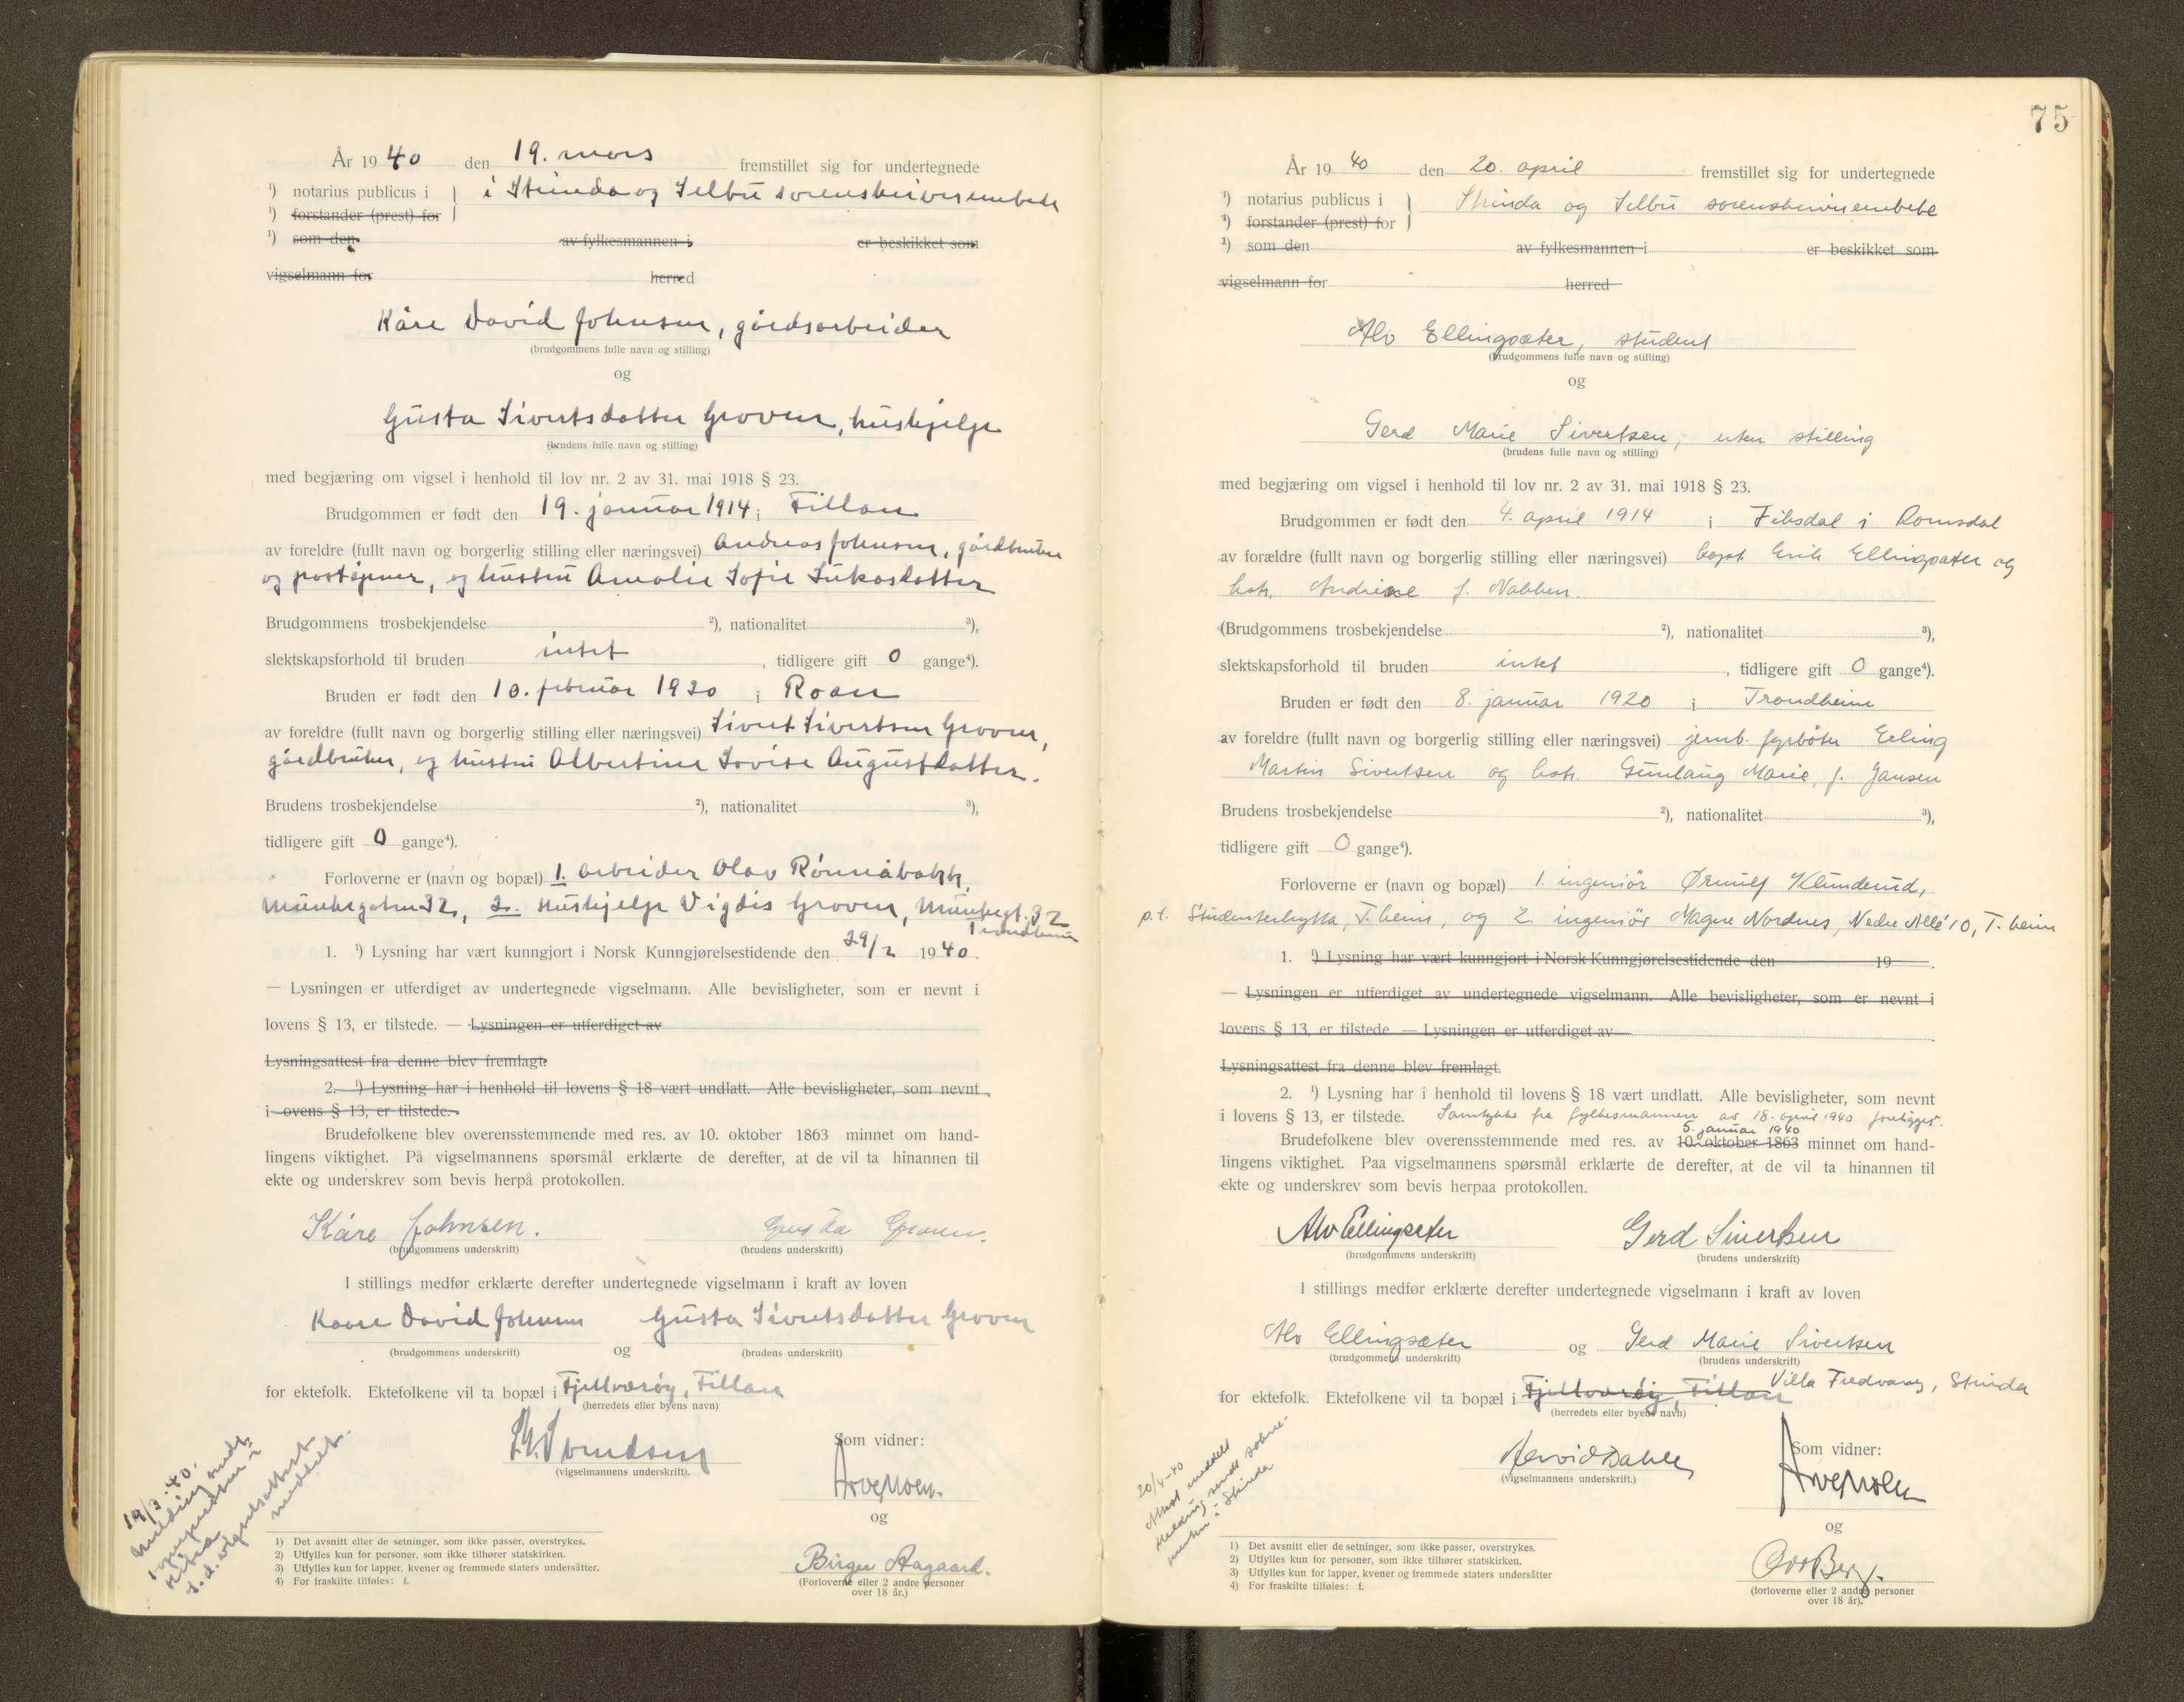 År 19 40 den 19. mars fremstillet sig for undertegnede
¹) notarius publicus i } i Strinda og Selbu sorenskriverembede
¹) forstander (prest) for
¹) som den av fylkesmannen i er beskikket som
vigselmann for herred
Kåre David Johnsen, gårdsarbeider
(brudgommens fulle navn og stilling)
og
Gusta Sivertsdatter Groven, hushjelp
(brudens fulle navn og stilling)
med begjæring om vigsel i henhold til lov nr. 2 av 31. mai 1918 § 23.
Brudgommen er født den 19. januar 1914 i Fillan
av foreldre (fullt navn og borgerlig stilling eller næringsvei) Andreas Johnsen, gårdbruker
og poståpner, og hustru Amalie Sofie Lukasdatter
Brudgommens trosbekjendelse ²), nationalitet ³),
slektskapsforhold til bruden intet, tidligere gift 0 gange⁴).
Bruden er født den 10. februar 1920 i Roan
av foreldre (fullt navn og borgerlig stilling eller næringsvei) Sivert Sivertsen Groven,
gårdbruker, og hustru Albertine Lovise Augustdatter.
Brudens trosbekjendelse ²), nationalitet ³),
tidligere gift 0 gange⁴).
Forloverne er (navn og bopæl) 1. arbeider Olav Rønnåbakk,
Munkegaten 32, 2. Hushjelp Vigdis Groven, Munkegt. 32
Trondheim
1. ¹) Lysning har vært kunngjort i Norsk Kunngjørelsestidende den 29/2 19 40.
— Lysningen er utferdiget av undertegnede vigselmann. Alle bevisligheter, som er nevnt i
lovens § 13, er tilstede. — Lysningen er utferdiget av
Lysningsattest fra denne blev fremlagt.
2. ¹) Lysning har i henhold til lovens § 18 vært undlatt. Alle bevisligheter, som nevnt
i ovens § 13, er tilstede.
Brudefolkene blev overensstemmende med res. av 10. oktober 1863 minnet om hand-
lingens viktighet. På vigselmannens spørsmål erklærte de derefter, at de vil ta hinannen til
ekte og underskrev som bevis herpå protokollen.
Kåre Johnsen. Gusta Groven.
(brudgommens underskrift) (brudens underskrift)
I stillings medfør erklærte derefter undertegnede vigselmann i kraft av loven
Kaare David Johnsen Gusta Sivertsdatter Groven
(brudgommens underskrift) og (brudens underskrift)
for ektefolk. Ektefolkene vil ta bopæl i Fjellværøy, Fillan
(herredets eller byens navn)
Som vidner:
(vigselmannens underskrift).
og
Birger Aagaard.
(Forloverne eller 2 andre personer
over 18 år.)
19/3-40.
melding sendt
sognepresten i
Hitra
s.d. vigselsattest
meddelt.
1) Det avsnitt eller de setninger, som ikke passer, overstrykes.
2) Utfylles kun for personer, som ikke tilhører statskirken.
3) Utfylles kun for lapper, kvener og fremmede staters undersåtter.
4) For fraskilte tilføies: f.
75
År 19 40 den 20. april fremstillet sig for undertegnede
¹) notarius publicus i } Strinda og Selbu sorenskriverembete
¹) forstander (prest) for
¹) som den av fylkesmannen i er beskikket som
vigselmann for herred
Alv Ellingsæter, student
(brudgommens fulle navn og stilling)
og
Gerd Marie Sivertsen, uten stilling
(brudens fulle navn og stilling)
med begjæring om vigsel i henhold til lov nr. 2 av 31. mai 1918 § 23.
Brudgommen er født den 4. april 1914 i Eidsdal i Romsdal
av forældre (fullt navn og borgerlig stilling eller næringsvei) kapt Erik Ellingsæter og
hstr. f. Nabben.
(Brudgommens trosbekjendelse ²), nationalitet ³),
slektskapsforhold til bruden intet, tidligere gift 0 gange⁴).
Bruden er født den 8. januar 1920 i Trondheim
av foreldre (fullt navn og borgerlig stilling eller næringsvei) jernb. fyrbøter Erling
Martin Sivertsen og hstr. Gunlaug Marie, f. Jansen
Brudens trosbekjendelse ²), nationalitet ³),
tidligere gift 0 gange⁴).
Forloverne er (navn og bopæl) 1. ingeniør Ørnulf Klunderud,
p.t. Studenterhytta, T.heim, og 2. ingeniør Magne Nordnes, Nedre Allé 10, T.heim
1. ¹) Lysning har vært kunngjort i Norsk Kunngjørelsestidende den 19 .
— Lysningen er utferdiget av undertegnede vigselmann. Alle bevisligheter, som er nevnt i
lovens § 13, er tilstede — Lysningen er utferdiget av
Lysningsattest fra denne blev fremlagt.
2. ¹) Lysning har i henhold til lovens § 18 vært undlatt. Alle bevisligheter, som nevnt
i lovens § 13, er tilstede. Samtykke fra fylkesmannen av 18. april 1940 foreligger.
5. januar 1940
Brudefolkene blev overensstemmende med res. av 10. oktober 1863 minnet om hand-
lingens viktighet. Paa vigselmannens spørsmål erklærte de derefter, at de vil ta hinannen til
ekte og underskrev som bevis herpaa protokollen.
Alv Ellingsæter Gerd Sivertsen
(brudgommens underskrift) (brudens underskrift)
I stillings medfør erklærte derefter undertegnede vigselmann i kraft av loven
Alv Ellingsæter og Gerd Marie Sivertsen
(brudgommens underskrift) (brudens underskrift)
Villa Fredvang, Strinda
for ektefolk. Ektefolkene vil ta bopæl i Fjellværøy, Fillan
(herredets eller byens navn)
Som vidner:
(vigselmannens underskrift.)
og
(forloverne eller 2 andre personer
over 18 år).
20/4-40
Attest meddelt
melding sendt sokne-
presten i Strinda
1) Det avsnitt eller de setninger, som ikke passer, overstrykes.
2) Utfylles kun for personer, som ikke tilhører statskirken.
3) Utfylles kun for lapper, kvener og fremmede staters undersåtter
4) For fraskilte tilføies: f.